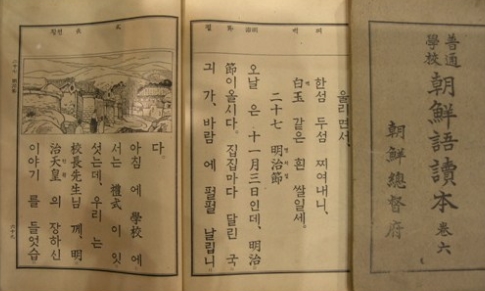 普通
學校
朝鮮語讀本 卷六
朝鮮總督府
울리면서,
한섬 두섬 찌여내니,
白玉 같은 흰 쌀일세.
二十七 明治節
오날 은 十一月三日인데, 明治
節이올시다. 집집마다 달린 국
긔 가, 바람 에 펄펄 날립니
다.
아침 에 學校 에
서는 禮式 이 잇
섯는데, 우리 는
校長先生님 께, 明
治天皇 의 장하신
이야기 를 들엇습